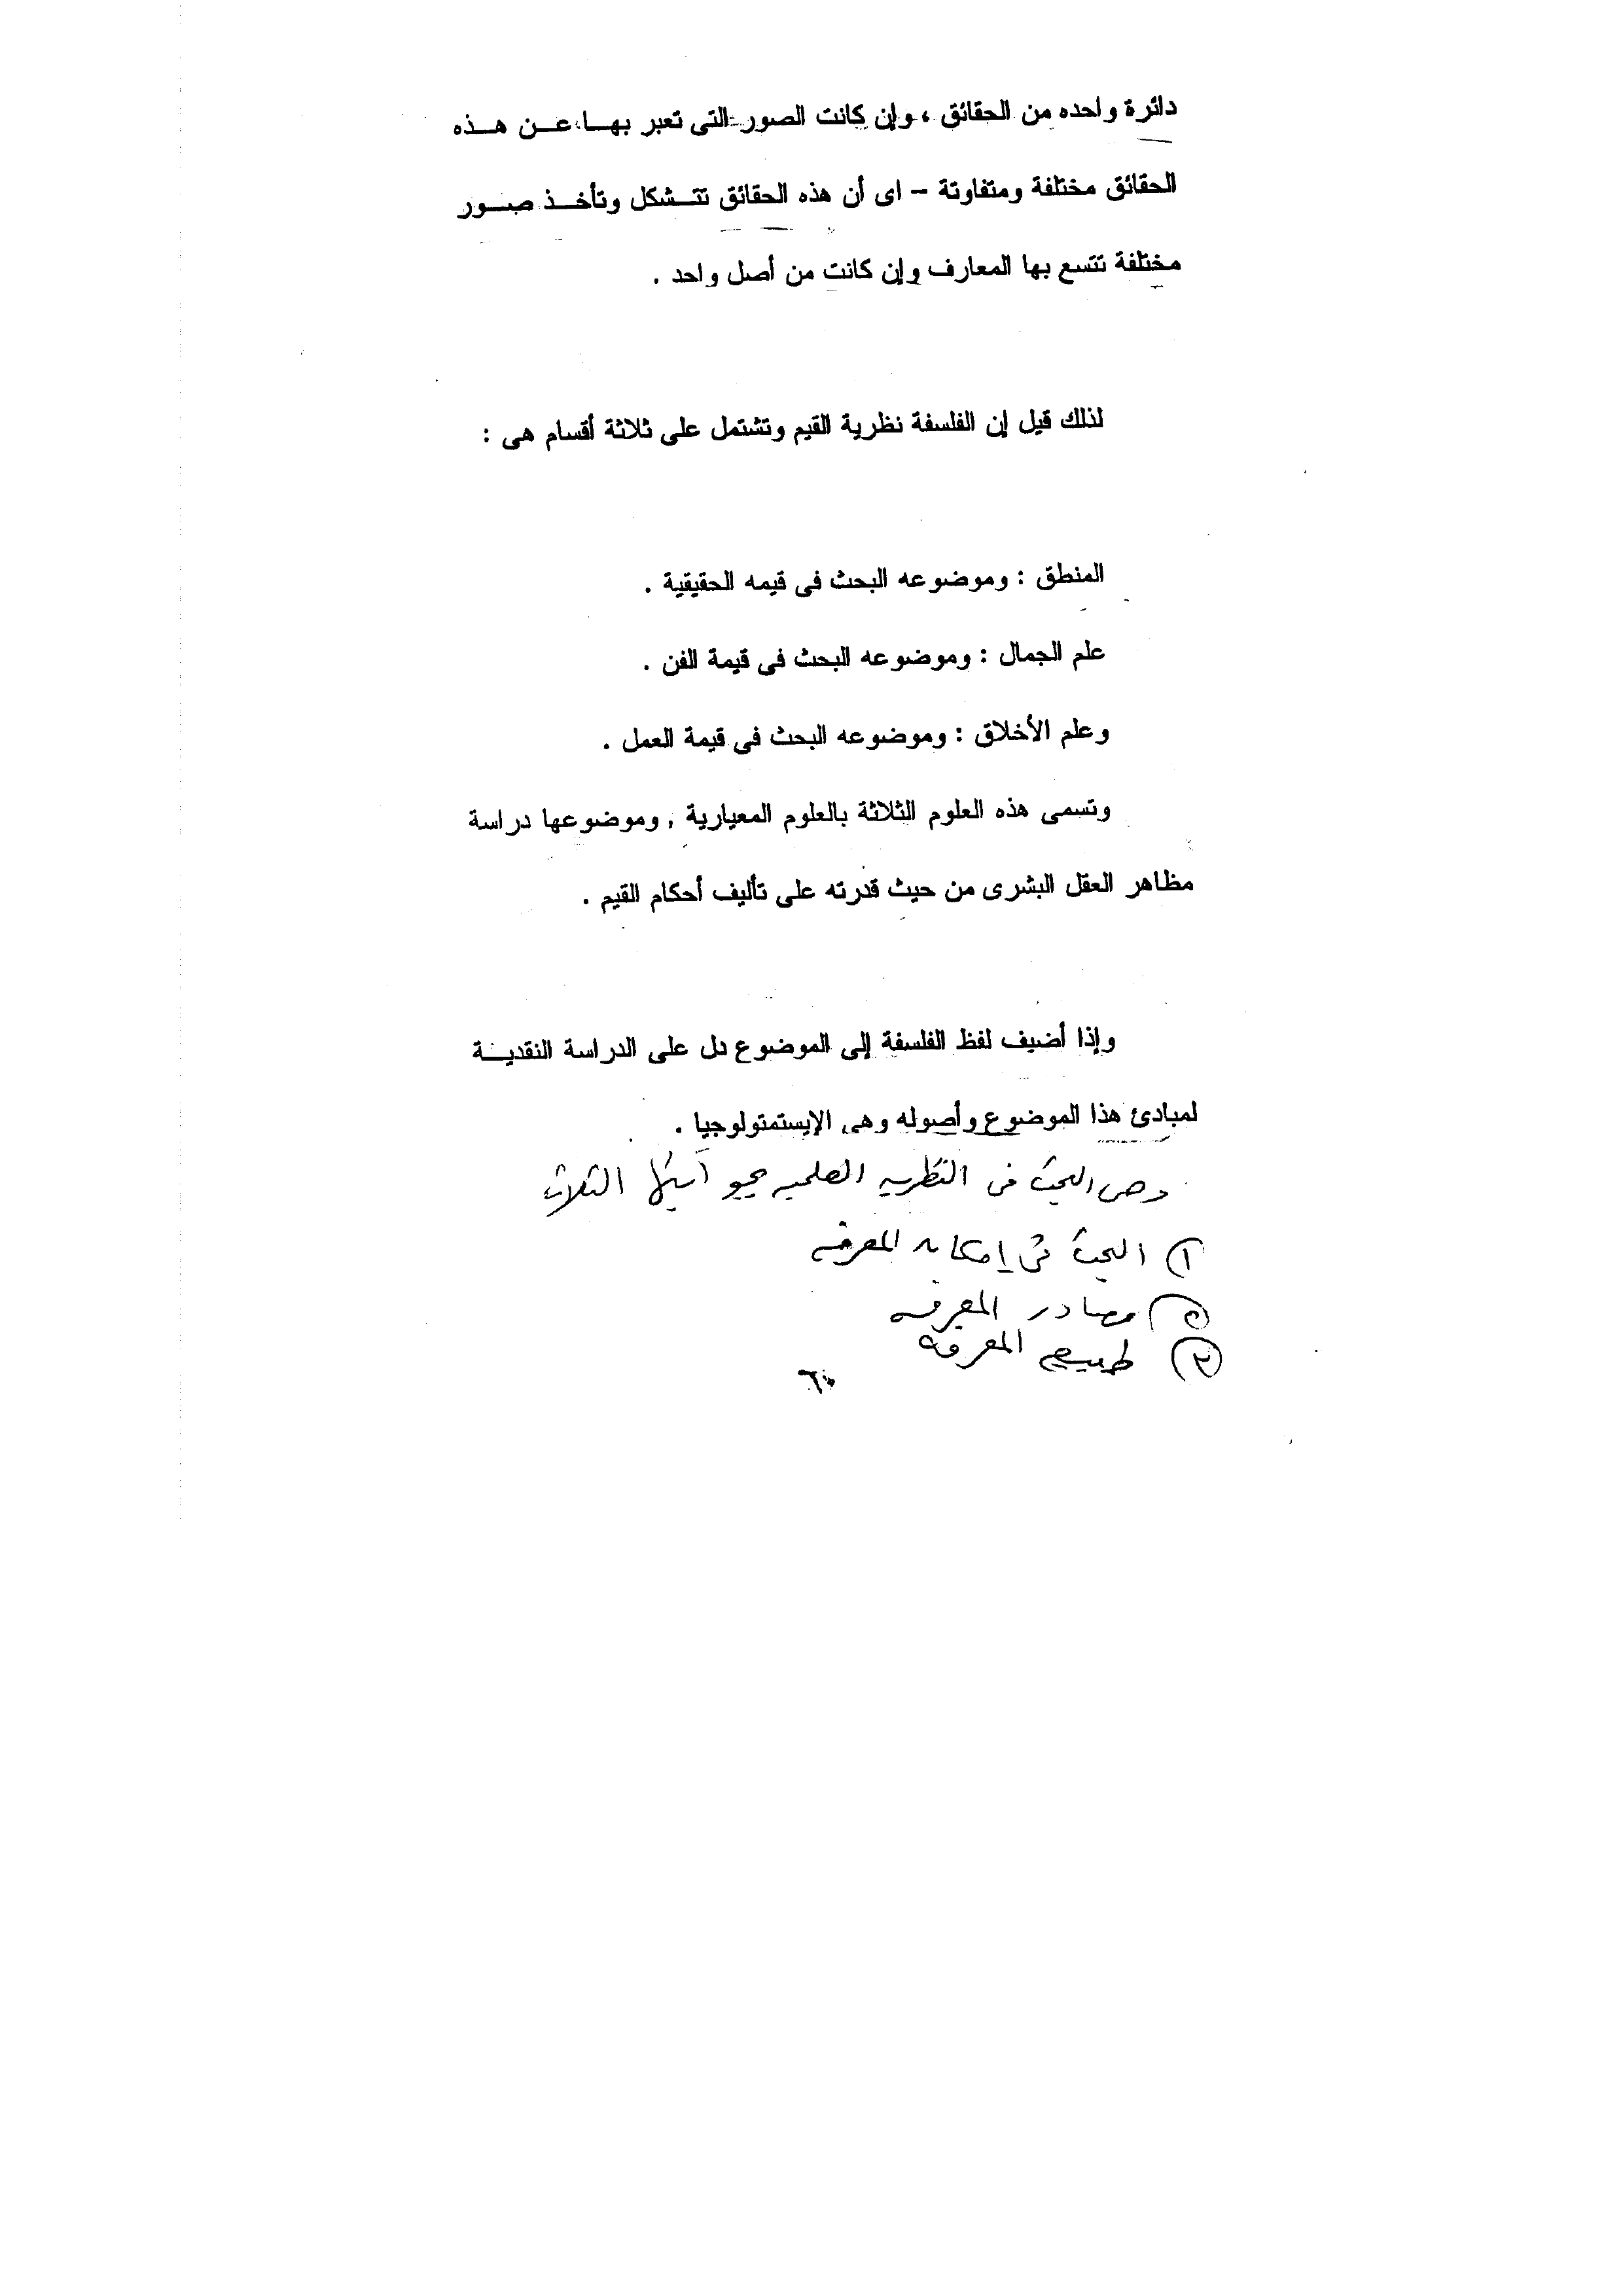 دائرة واحده من الحقائق ، وإن كانت الصور التى تعبر بهـــا عـــن هـــذه
الحقائق مختلفة ومتفاوتة – اى أن هذه الحقائق تتـــشكل وتأخـــذ صـــور
مختلفة تتسع بها المعارف وإن كانت من أصل واحد .
لذلك قيل إن الفلسفة نظرية القيم وتشتمل على ثلاثة أقسام هى :
المنطق : وموضوعه البحث فى قيمه الحقيقية .
علم الجمال : وموضوعه البحث فى قيمة الفن .
وعلم الأخلاق : وموضوعه البحث فى قيمة العمل .
وتسمى هذه العلوم الثلاثة بالعلوم المعيارية , وموضوعها دراسة
مظاهر العقل البشرى من حيث قدرته على تأليف أحكام القيم .
وإذا أضيف لفظ الفلسفة إلى الموضوع دل على الدراسة النقديـــة
لمبادئ هذا الموضوع وأصوله وهى الإيستمتولوجيا .
وهى البحث فى النظريه العلميه الثلاث
١) البحث فى إمكانيه المعرفه
مصادر المعرفه
طبيعه المعرفه